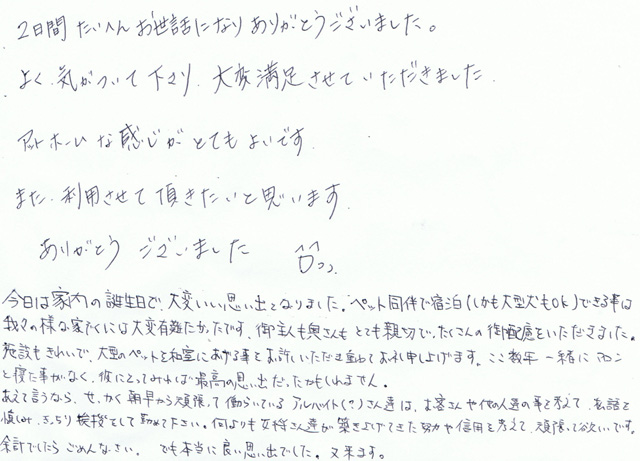 2日間 たいへん お世話になり ありがとうございました。
よく、気がついて下さり、大変満足させていただきました
アットホームな感じがとてもよいです。
また、利用させて頂きたいと思います。
ありがとう ございました
今日は家内の誕生日で、大変いい思い出となりました。ペット同伴で宿泊(しかも大型犬もOK)できる事は
我々の様な家たくには大変有難たかったです。御主人も奥さんも とても親切で、たくさんの御配慮をいただきました。
施設もきれいで、大型のペットを和室にあげる事をお許しいただき重ねてお礼申し上げます。ここ数年 一緒に マロン
と寝た事がなく、彼にとってみれば最高の思い出だったかもしれません。
あえて言うなら、せっかく朝早から頑張って働らいている アルバイト(?)さん達は、お客さんや他の人達の事を考えて、私語を
慎しみ、きっちり挨拶をして勤めて下さい。何よりも女将さん達が築き上げてきた努力や信用を考えて、頑張って欲しいです。
余計でしたら ごめんなさい。 でも本当に良い思い出でした。又来ます。